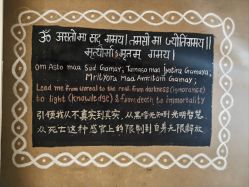 ॐ असतो मा सद् गमय। तमसो मा ज्योतिर्गमय।।
मृत्योर्मा अमृतम् गमय।
om Asto maa Sud Gamay, Tamaso maa Jyotirg Gamaya,
Mrityoru Maa Amritam Gamay;
Lead me from unreal to the real, from darkness (ignorance)
to light (knowledge) & from death to immortality
引领我从不真实到真实, 从黑暗无知到光明智慧,
从死亡这种感官上的限制到自身无限解放